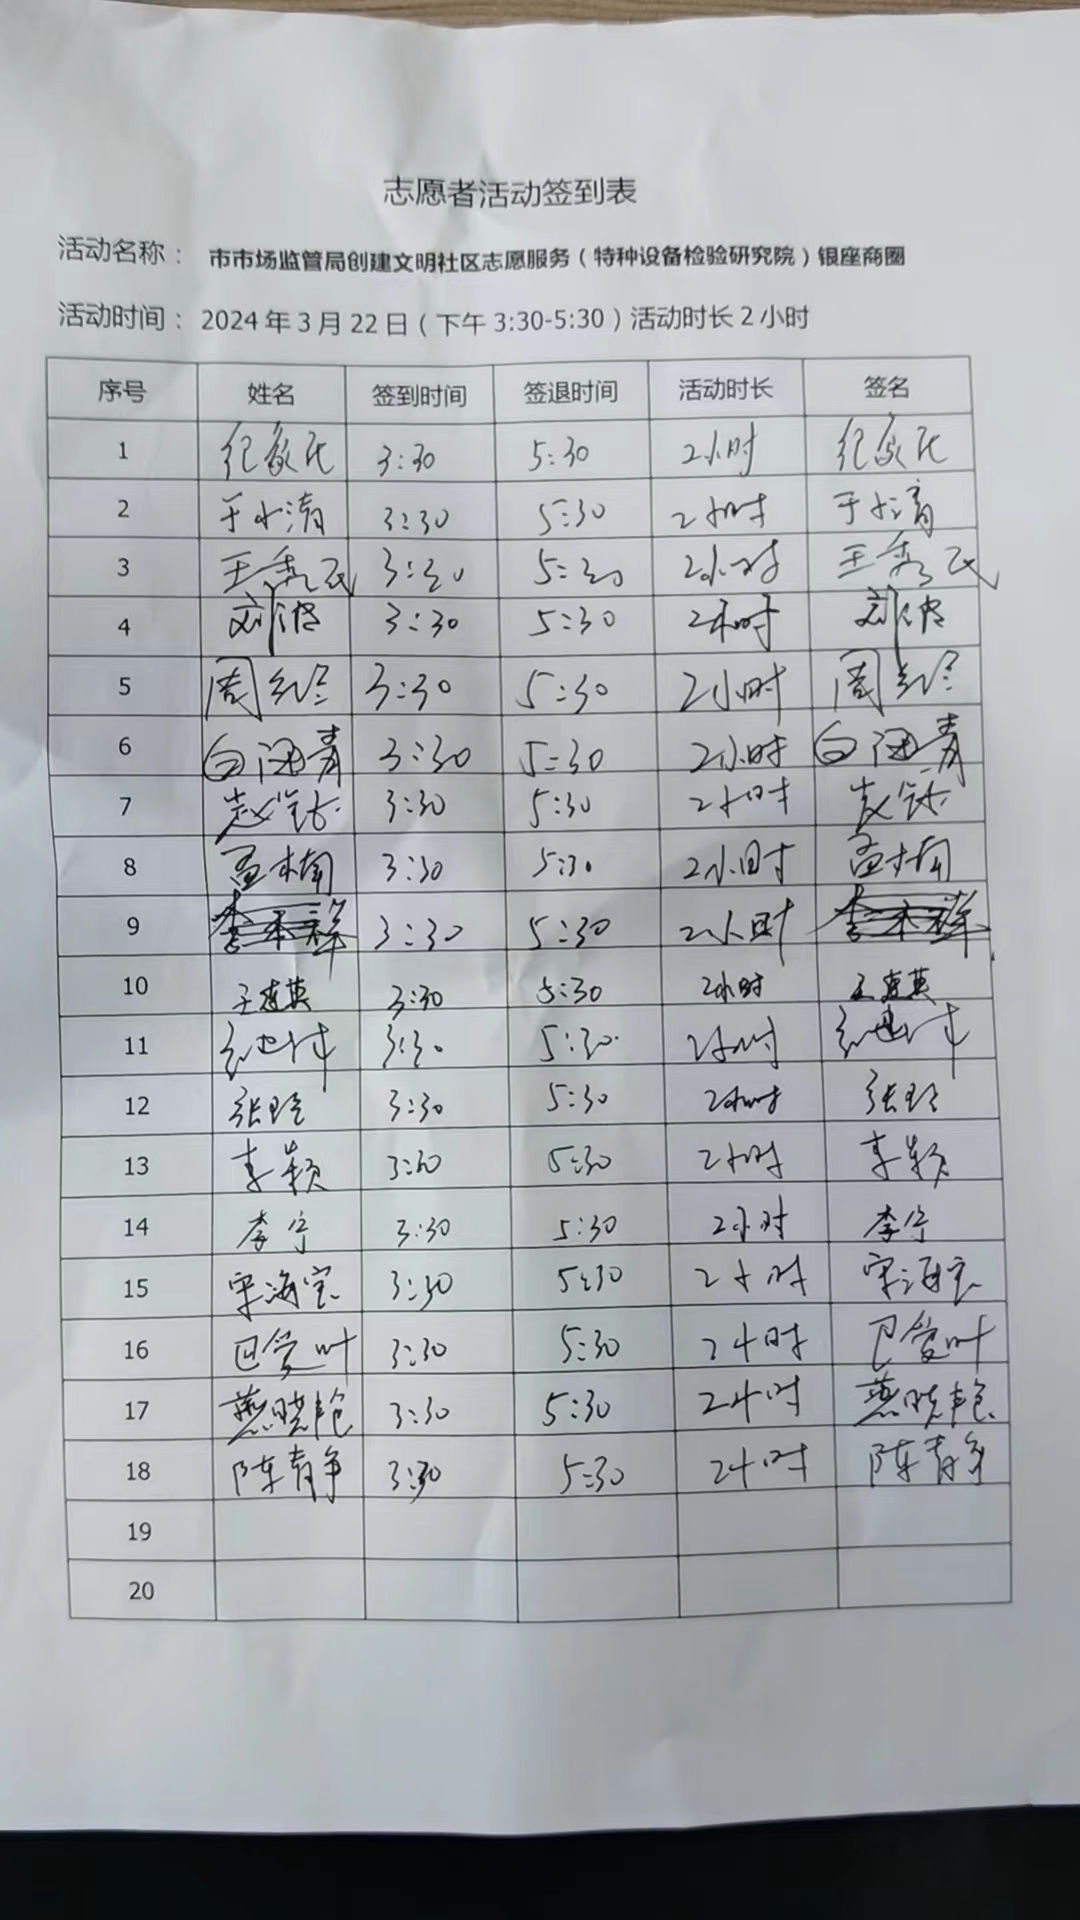 志愿者活动签到表
活动名称： 市市场监管局创建文明社区志愿服务（特种设备检验研究院）银座商圈
活动时间： 2024年3月22日（下午3:30-5:30）活动时长2小时
序号 姓名 签到时间 签退时间 活动时长 签名
1 纪敬民 3:30 5:30 2小时 纪敬民
2 于水清 3:30 5:30 2小时 于水清
3 王秀民 3:30 5:30 2小时 王秀民
4 3:30 5:30 2小时
5 3:30 5:30 2小时
6 3:30 5:30 2小时
7 3:30 5:30 2小时
8 孟楠 3:30 5:30 2小时 孟楠
9 3:30 5:30 2小时
10 王连英 3:30 5:30 2小时 王连英
11 3:30 5:30 2小时
12 张玲 3:30 5:30 2小时 张玲
13 李颖 3:30 5:30 2小时 李颖
14 李宁 3:30 5:30 2小时 李宁
15 宋海宝 3:30 5:30 2小时 宋海宝
16 巴爱叶 3:30 5:30 2小时 巴爱叶
17 燕晓艳 3:30 5:30 2小时 燕晓艳
18 陈青争 3:30 5:30 2小时 陈青争
19
20